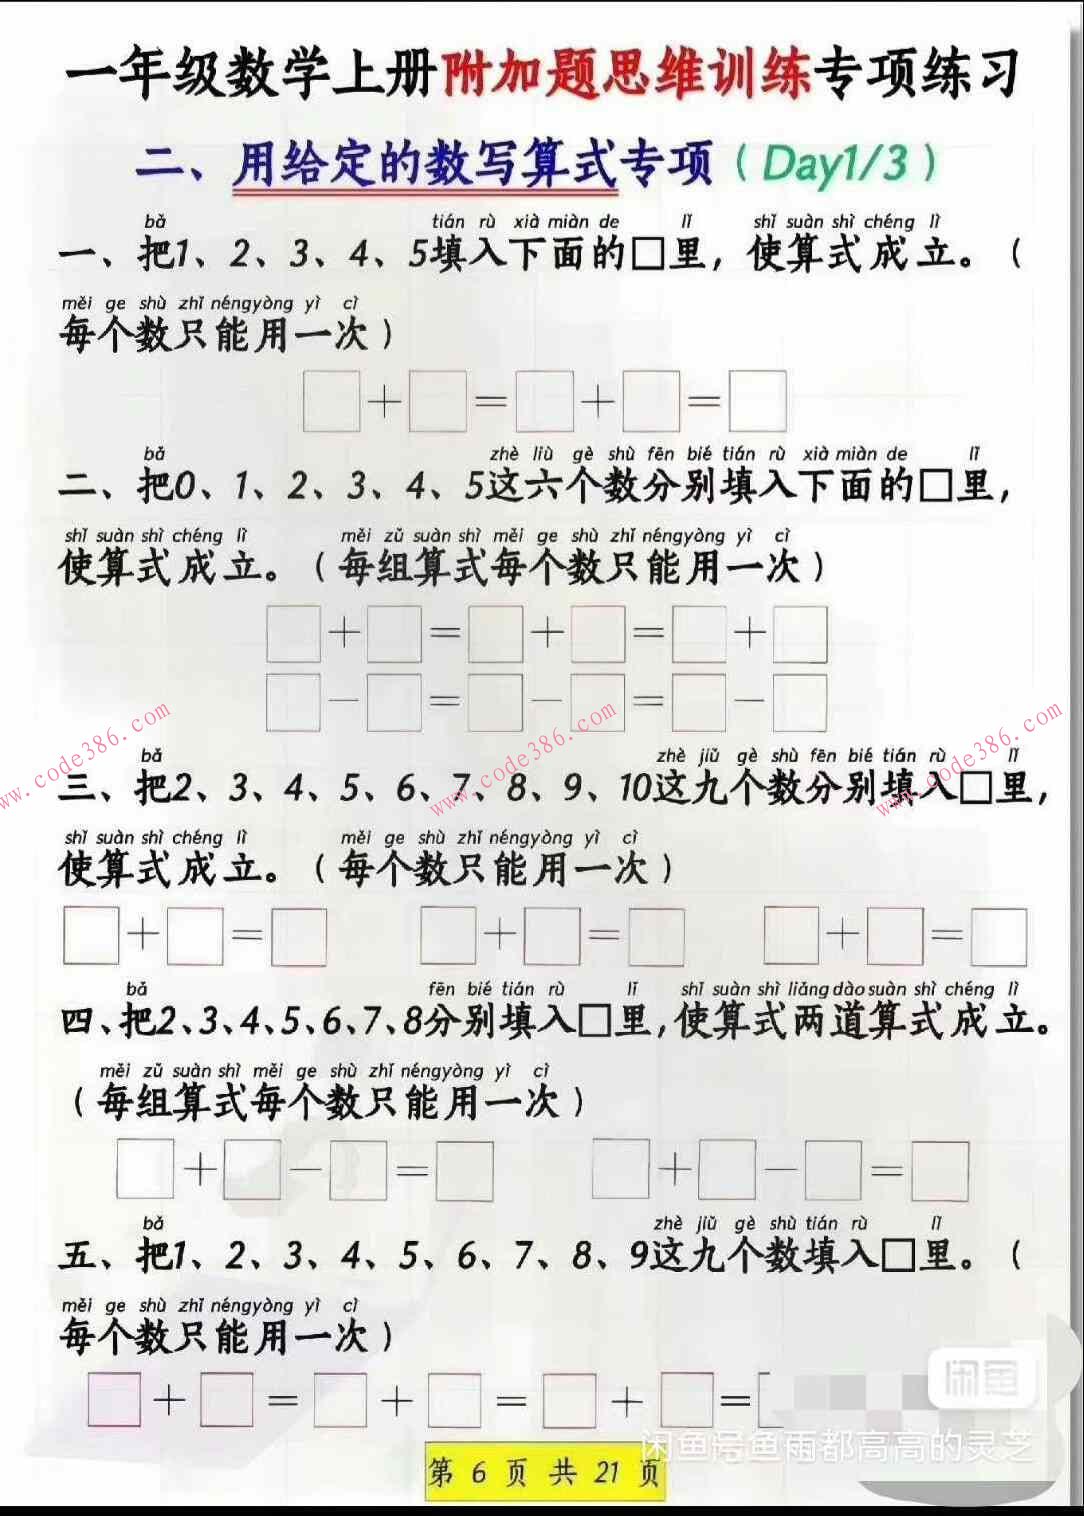 一年级数学上册附加题思维训练专项练习
二、用给定的数写算式专项（Day1/3）
bǎ tián rù xià miàn de lǐ shǐ suàn shì chéng lì
一、把1、2、3、4、5填入下面的□里，使算式成立。（
měi ge shù zhǐ néngyòng yì cì
每个数只能用一次）
□＋□＝□＋□＝□
bǎ zhè liù gè shù fēn bié tián rù xià miàn de lǐ
二、把0、1、2、3、4、5这六个数分别填入下面的□里，
shǐ suàn shì chéng lì měi zǔ suàn shì měi ge shù zhǐ néngyòng yì cì
使算式成立。（每组算式每个数只能用一次）
□＋□＝□＋□＝□＋□
□－□＝□－□＝□－□
bǎ zhè jiǔ gè shù fēn bié tián rù lǐ
三、把2、3、4、5、6、7、8、9、10这九个数分别填入□里，
shǐ suàn shì chéng lì měi ge shù zhǐ néngyòng yì cì
使算式成立。（每个数只能用一次）
□＋□＝□ □＋□＝□ □＋□＝□
bǎ fēn bié tián rù lǐ shǐ suàn shì liǎng dào suàn shì chéng lì
四、把2、3、4、5、6、7、8分别填入□里，使算式两道算式成立。
měi zǔ suàn shì měi ge shù zhǐ néngyòng yì cì
（每组算式每个数只能用一次）
□＋□－□＝□ □＋□－□＝□
bǎ zhè jiǔ gè shù tián rù lǐ
五、把1、2、3、4、5、6、7、8、9这九个数填入□里。（
měi ge shù zhǐ néngyòng yì cì
每个数只能用一次）
□＋□＝□＋□＝□＋□＝□
闲鱼
闲鱼号鱼雨都高高的灵芝
第 6 页 共 21 页
www.code386.com
www.code386.com
www.code386.com